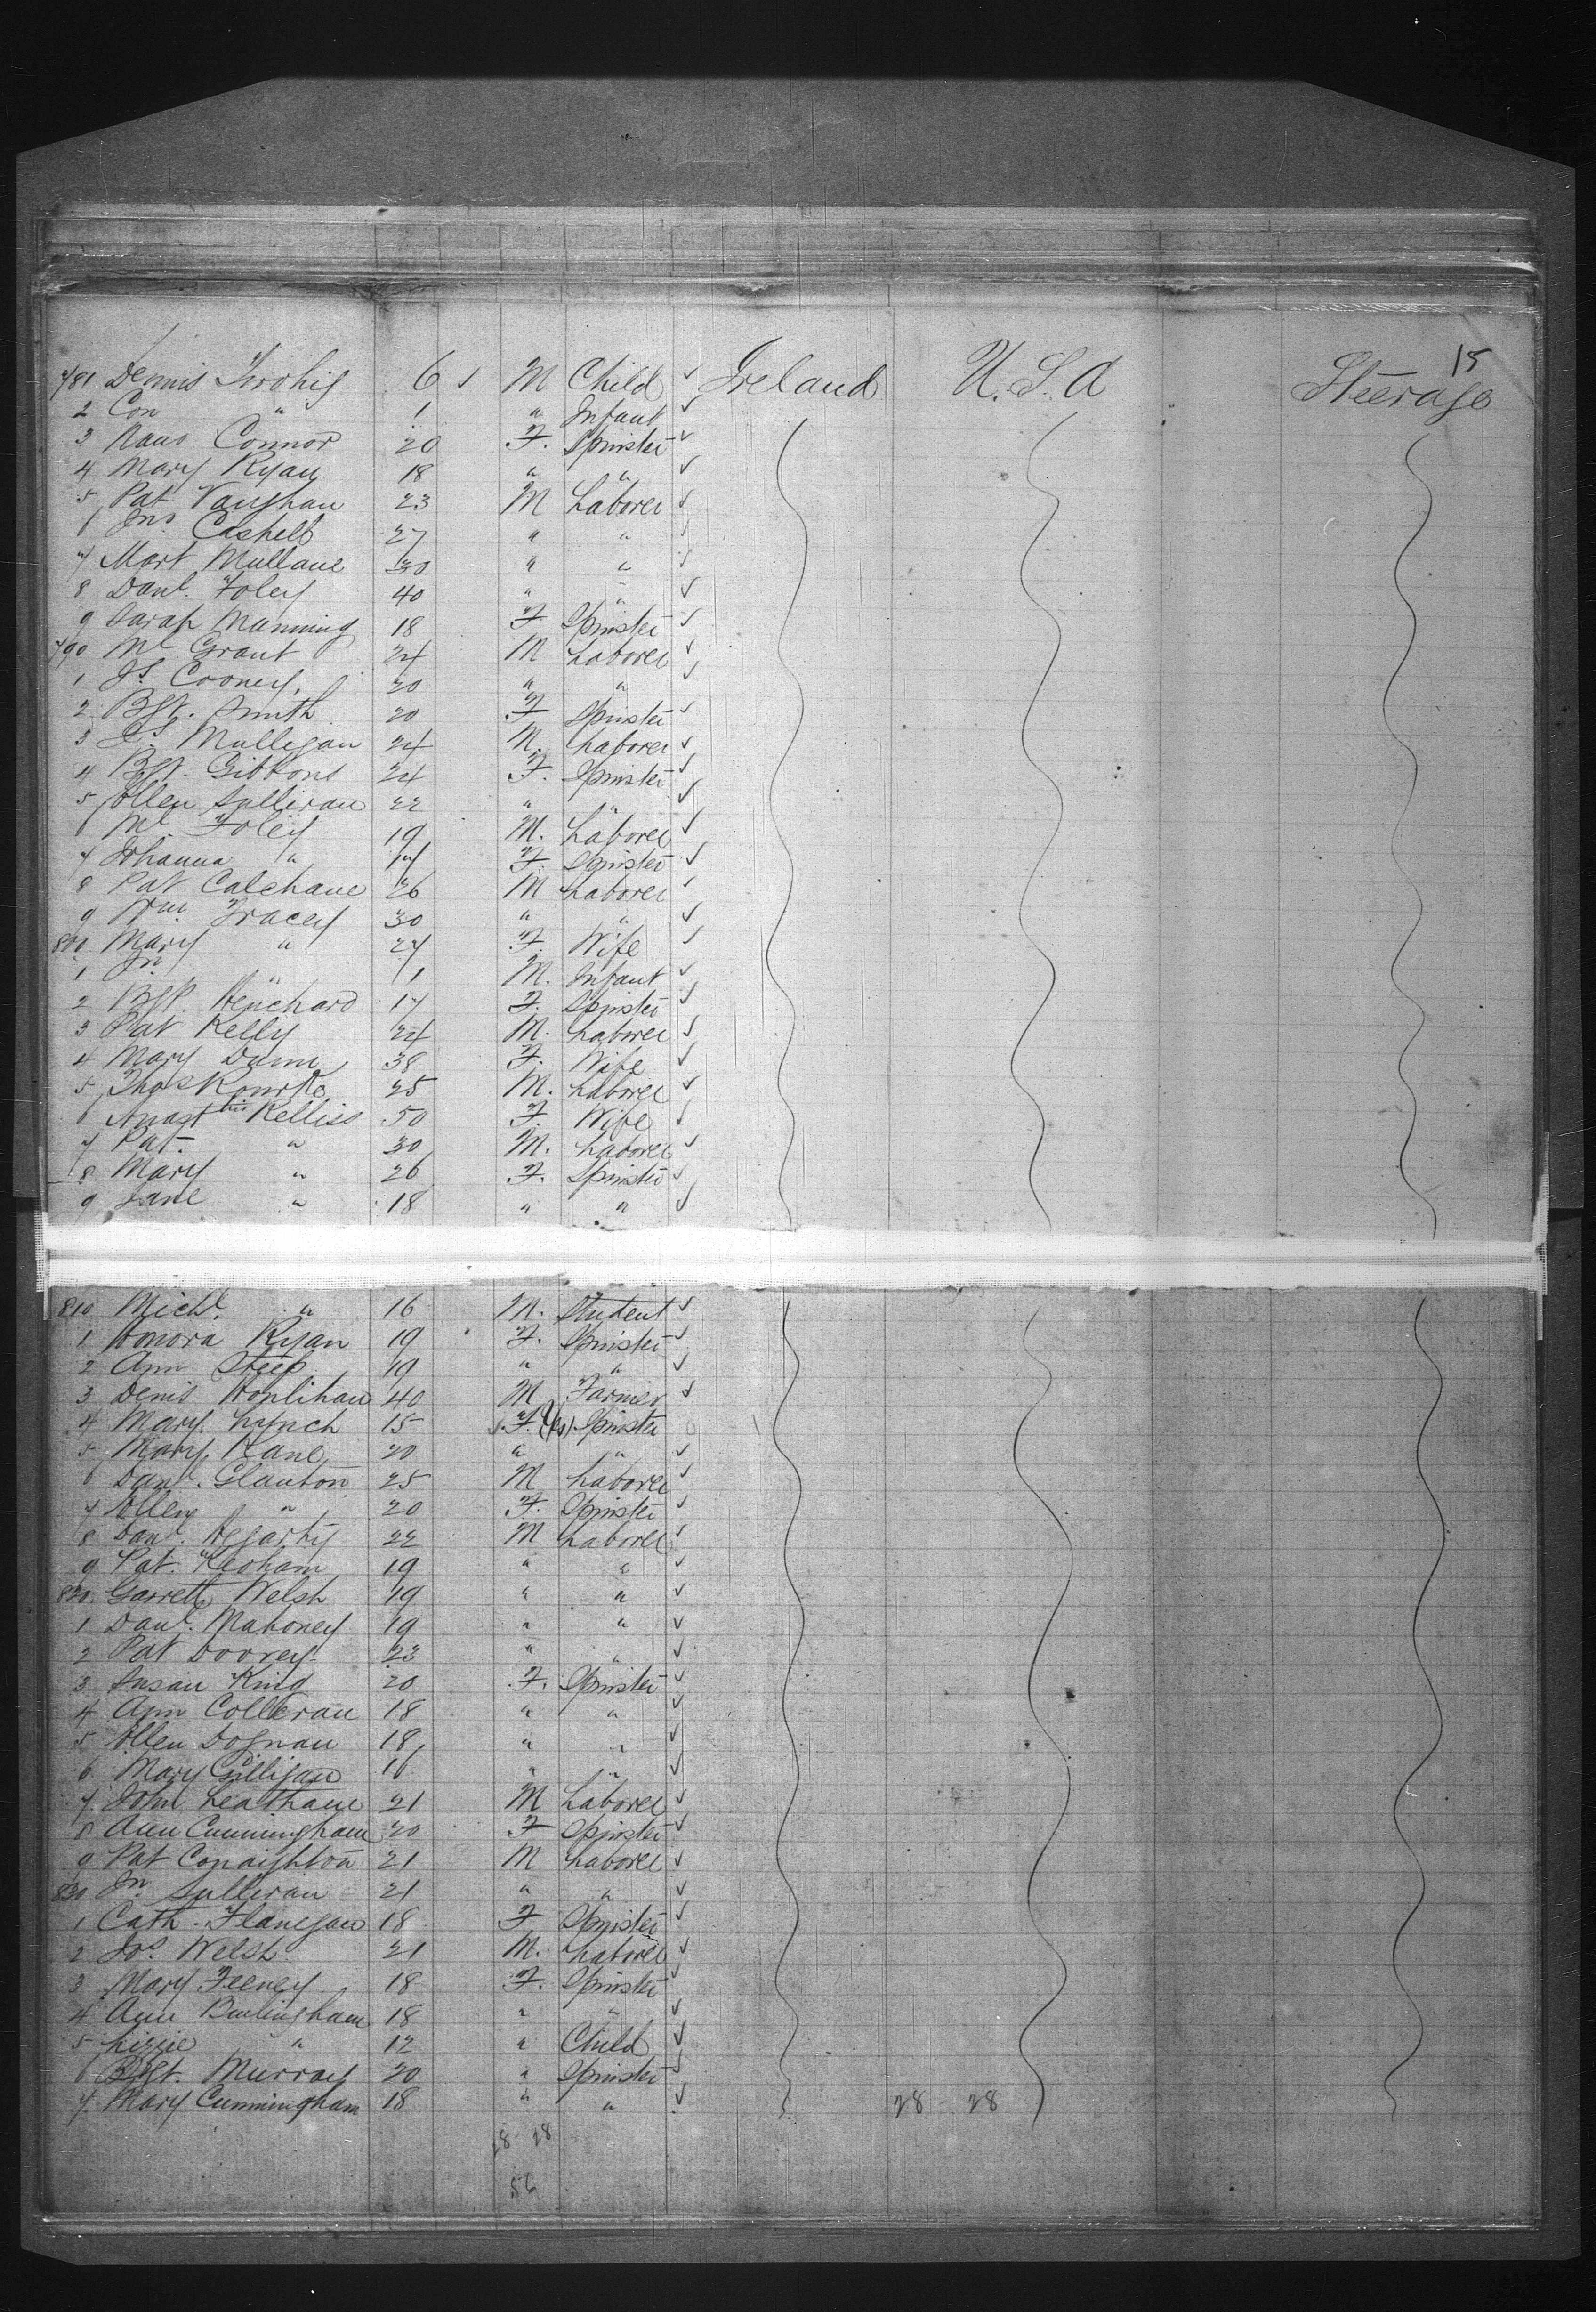 15
781 Dennis Twohig 6 M Child Ireland U.S.A Steerage
2 Con " 1 " Infant
3 Connor 20 F. Spinster
4 Mary Ryan 18 " "
5 Pat Vaughan 23 M Laborer
6 Jno Cashell 27 " "
7 Mart Mullane 30 " "
8 Danl. Foley 40 " "
9 Sarah Manning 18 F Spinster
790 Ml Grant 24 M Laborer
1 Js. Cooney 20 " "
2 Bgt. Smith 20 F Spinster
3 Js Mulligan 24 M. Laborer
4 Bgt. Gibbons 24 F. Spinster
5 Ellen Sullivan 22 " "
6 Ml. Foley 19 M. Laborer
7 Johanna " 17 F. Spinster
8 Pat Calehane 26 M Laborer
9 Wm Tracey 30 " "
800 Mary " 27 F. Wife
1 Jn " 1 M. Infant
2 Bgt. 17 F. Spinster
3 Pat Kelly 24 M. Laborer
4 Mary Dunn 38 F. Wife
5 Thos Rourke 25 M. Laborer
6 Kelliss 50 F. Wife
7 Pat. " 30 M. Laborer
8 Mary " 26 F. Spinster
9 Jane " 18 " "
810 Michl. " 16 M. Student
1 Honora Ryan 19 F. Spinster
2 Ann 19 " "
3 Denis Houlihan 40 M Farmer
4 Mary Lynch 15 F. (Yes) Spinster
5 Mary Kane 20 " "
6 Danl. Glanton 25 M Laborer
7 Ellen " 20 F. Spinster
8 Danl. Hegarty 22 M Laborer
9 Pat. 19 " "
820 Garrett Welsh 19 " "
1 Danl. Mahoney 19 " "
2 Pat Doorey 23 " "
3 Susan King 20 F. Spinster
4 Ann Colleran 18 " "
5 Ellen Dognau 18 " "
6 Mary Gilligan 16 " "
7 John Leathane 21 M Laborer
8 Ann Cunningham 20 F Spinster
9 Pat Conaighton 21 M Laborer
830 Jn Sullivan 21 " "
1 Cath. Flanegan 18 F Spinster
2 Jos. Welsh 21 M. Laborer
3 Mary Feeney 18 F. Spinster
4 Ann Burlingham 18 " "
5 Lizzie " 12 " Child
6 Bgt. Murray 20 " Spinster
7 Mary Cunningham 18 " " 28 - 28
28 28
56